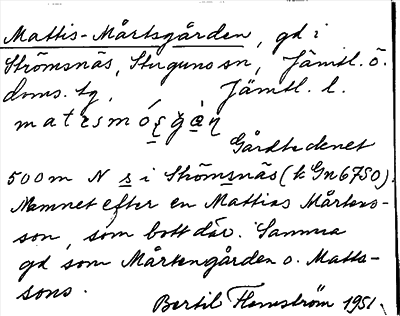 Mattis-Mårtsgården, gd i
Strömsnäs, Stuguns sn, Jämtl. ö.
doms. tg, Jämtl. l.
Gårdtecknet
500 m N s i Strömsnäs (k Gn6750).
Namnet efter en Mattias Mårtens-
son, som bott där. Samma
gd som Mårtengården o. Matts-
sons.
Bertil Flemström 1951.